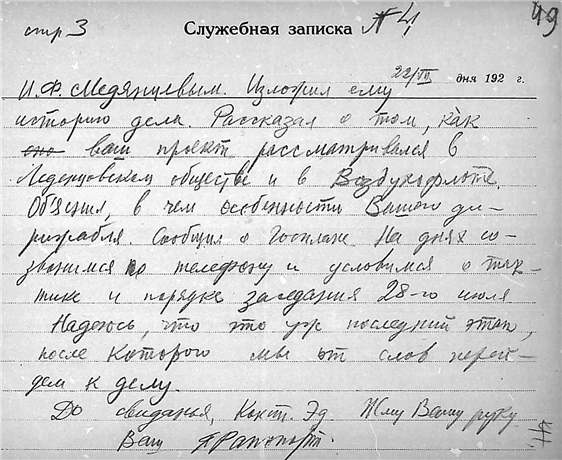 стр 3 Служебная записка № 4 49
22/VI дня 192 г.
И.Ф. Медянцевым. Изложил ему
историю дела. Рассказал о том, как
оно ваш проект рассматривался в
Леденцовском обществе и в Воздухофлоте.
Об'яснил, в чем особенности Вашего ди-
рижабля. Сообщил о Госплане. На днях со-
звонимся по телефону и условимся о так-
тике и порядке заседания 28-го июля
Надеюсь, что это уж последний этап,
после которого мы от слов перей-
дем к делу.
До свиданья, Конст. Эд Жму Вашу руку
Ваш